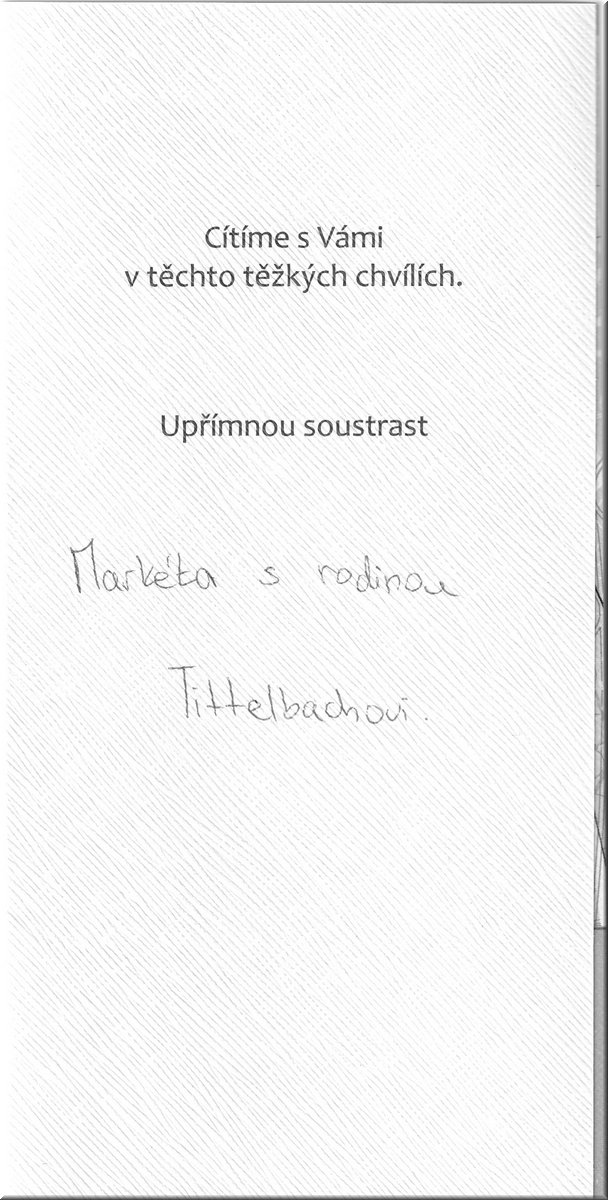 Cítíme s Vámi
v těchto těžkých chvílích.
Upřímnou soustrast
Markéta s rodinou
Tittelbachovi.